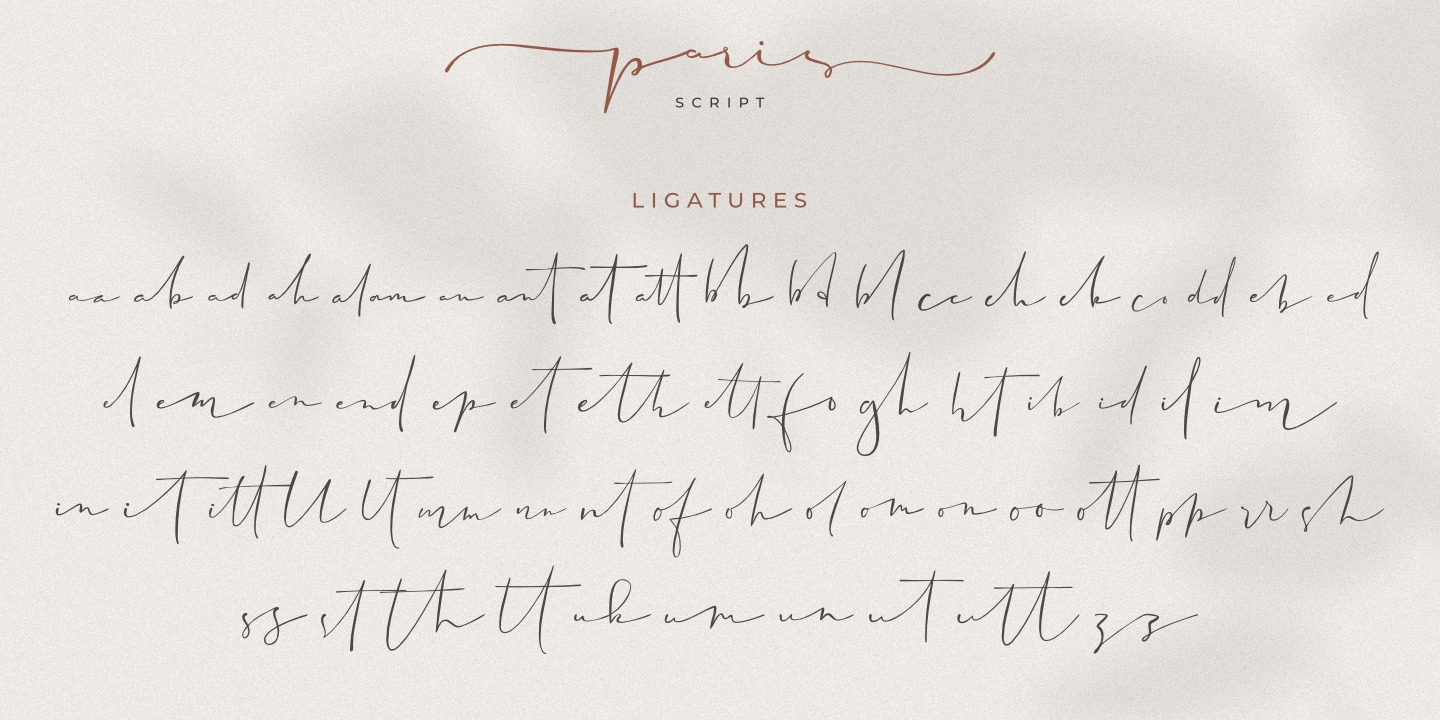 paris
SCRIPT
LIGATURES
aa ab ad ah al am an ant at att bb bd bl cc ch ck co dd eb ed
el em en end ep et eth ett fo gh ht ib id il im
in it itt ll lt mm nn nt of oh ol om on oo ott pp rr sh
ss st tth tt uk um un ut utt zz